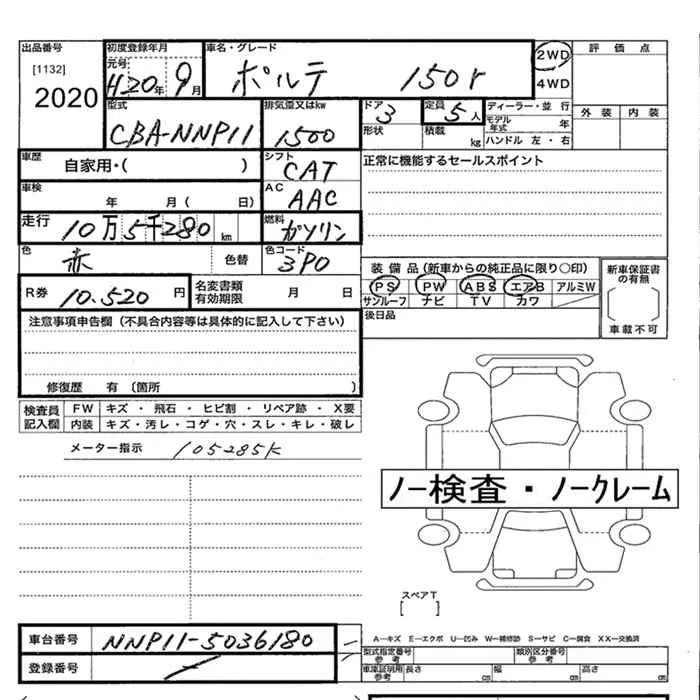 出品番号 初度登録年月 車名・グレード 2WD 評価点
[1132] 元号 H20年 9月 ポルテ 150r 4WD
2020 外装 内装
型式 排気量又はkw ドア 3 定員 5人 ディーラー・並行
CBA-NNP11 1500 形状 積載 kg モデル年式 年
ハンドル 左・右
車歴 自家用・( ) シフト CAT 正常に機能するセールスポイント
車検 年 月( 日) AC AAC
走行 10万5千280km 燃料 ガソリン
色 赤 色替 色コード 3P0 装備品(新車からの純正品に限り○印) 新車保証書の有無
R券 10.520円 名変書類有効期限 月 日 PS PW ABS エアB アルミW
サンルーフ ナビ TV カワ
後日品 車載不可
注意事項申告欄(不具合内容等は具体的に記入して下さい)
修復歴 有(箇所 )
検査員記入欄 FW キズ・飛石・ヒビ割・リペア跡・X要
内装 キズ・汚レ・コゲ・穴・スレ・キレ・破レ
メーター指示 105285K
ノー検査・ノークレーム
スペアT
[ ]
車台番号 NNP11-5036180 A−キズ E−エクボ U−凹み W−補修跡 S−サビ C−腐食 XX−交換済
登録番号 型式指定番号 参考 類別区分番号 参考
車庫証明用参考 長さ cm 幅 cm 高さ cm